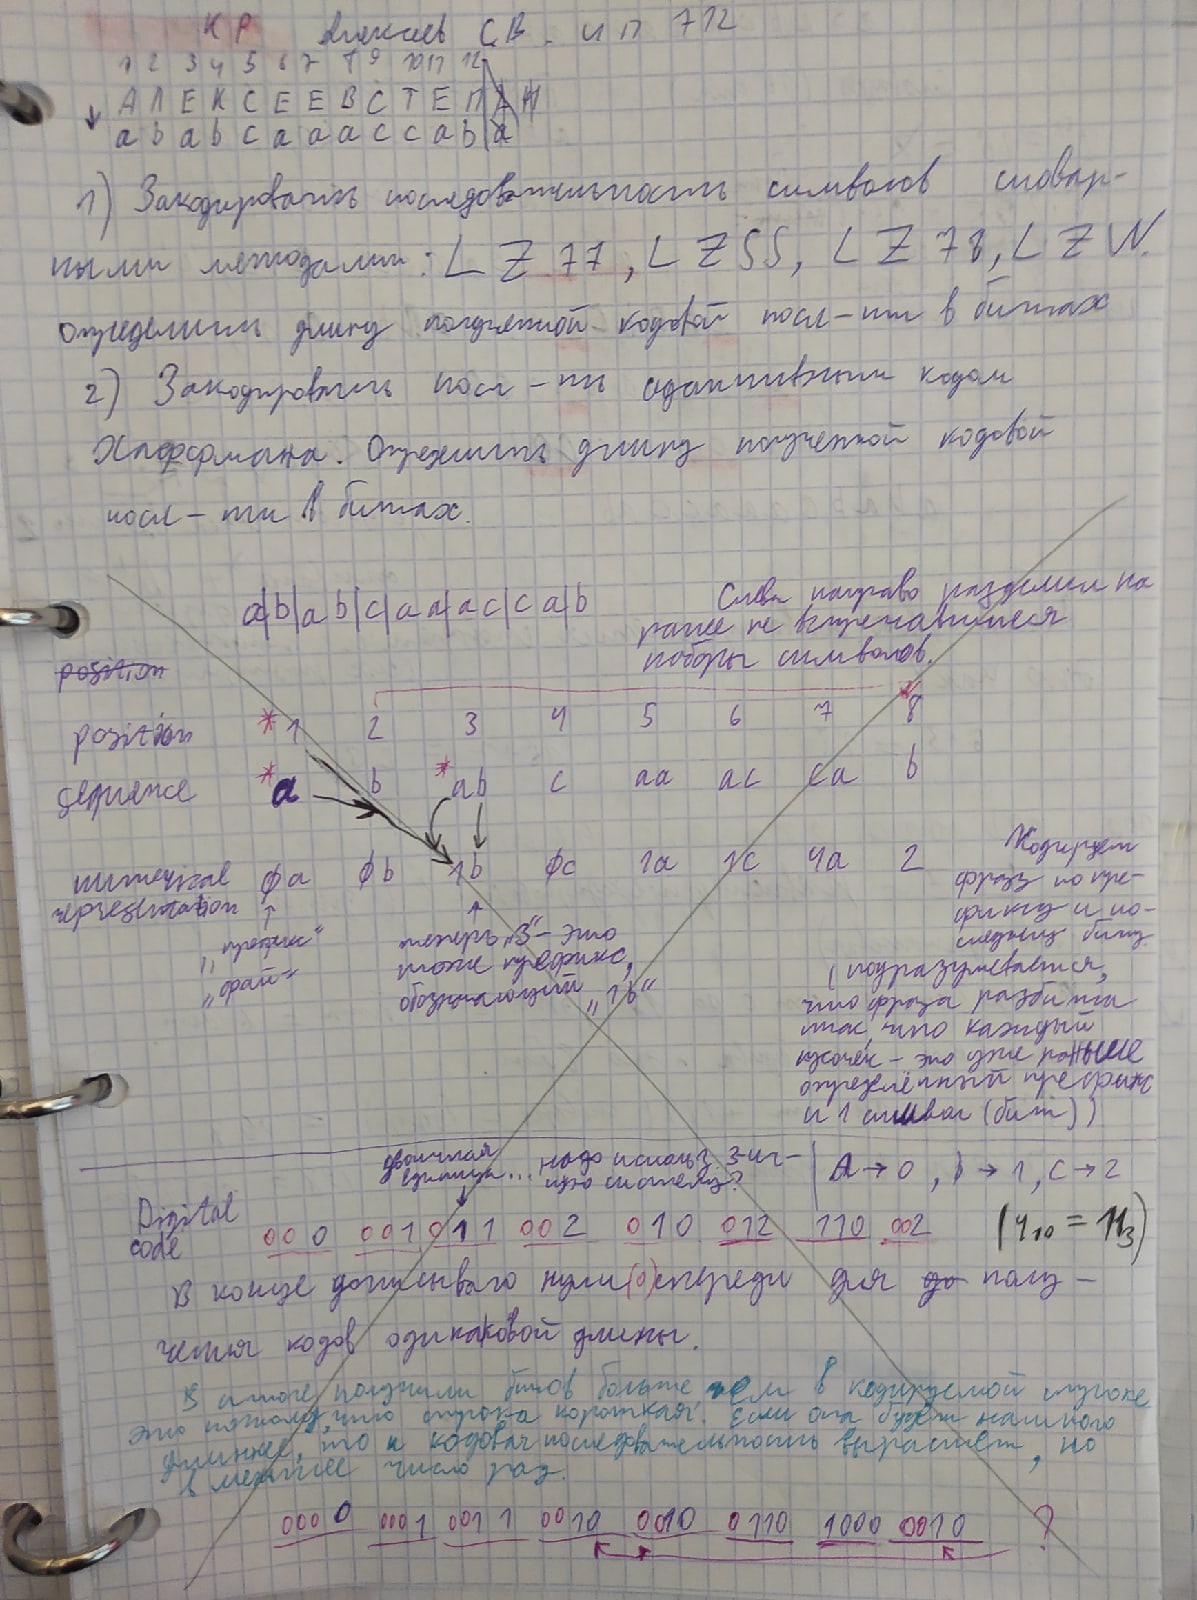 КР Алексеев С.В. ИП 712
1 2 3 4 5 6 7 8 9 10 11 12
А Л Е К С Е Е В С Т Е П А Н
a b a b c a a a c c a b a
1) Закодировать последовательность символов словар-
ными методами: LZ77, LZSS, LZ78, LZW.
Определить длину полученной кодовой посл-ти в битах
2) Закодировать посл-ть адаптивным кодом
Хаффмана. Определить длину полученной кодовой
посл-ти в битах.
a|b|a b|c|a a|a c|c a|b
Слева направо разделил на
ранее не встречавшиеся
наборы символов.
position
position * 1 2 3 4 5 6 7 * 8
sequence * a b * ab c aa ac ca b
numerical representation 0a 0b 1b 0c 1a 1c 4a 2
„префикс“
теперь „3“ – это
тоже префикс,
обозначающий „1b“
Кодируем
фразу по пре-
фиксу и по-
следнему биту
(подразумевается,
что фраза разбита
так, что каждый
кусочек – это уже раньше
определённый префикс
и 1 символ (бит))
двоичная
единица... надо использ. 3-ич-
ную систему?
A → 0, b → 1, c → 2
Digital code 000 001 011 002 010 012 110 002 (4₁₀ = 11₃)
В конце дописываю нули (0) спереди для до полу-
чения кодов одинаковой длины.
В итоге получили битов больше, чем в кодируемой строке
это потому, что строка короткая. Если она будет намного
длиннее, то и кодовая последовательность вырастет, но
в меньшее число раз.
0000 0001 0011 0010 0010 0110 1000 0010 ?